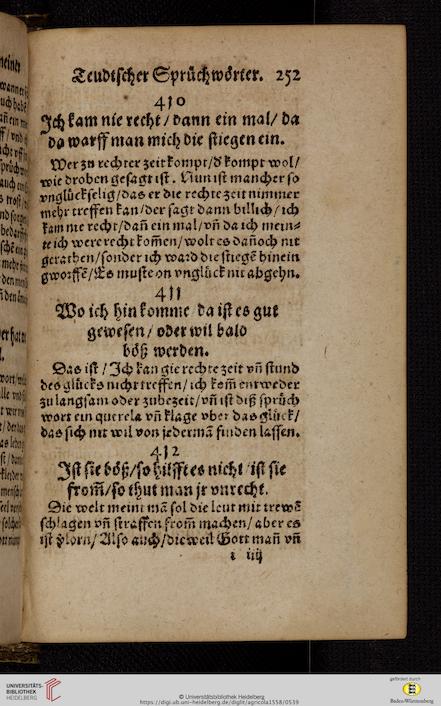 Teudtscher Sprüchwörter. 252
410
Jch kam nie recht / dann ein mal / da
da warff man mich die stiegen ein.
Wer zu rechter zeit kompt / d' kompt wol /
wie droben gesagt ist. Nun ist mancher so
vnglückselig / das er die rechte zeit nimmer
mehr treffen kan / der sagt dann billich / ich
kam nie recht / dañ ein mal / vñ da ich mein-
te ich were recht kom̃en / wolt es dañoch nit
gerathen / sonder ich ward die stiegẽ hinein
gworffẽ / Es muste on vnglück nit abgehn.
411
Wo ich hin komme / da ist es gut
gewesen / oder wil bald
böß werden.
Das ist / Jch kan gie rechte zeit vñ stund
des glücks nicht treffen / ich kom̃ entweder
zu langsam oder zubezeit / vñ ist diß sprüch
wort ein querela vñ klage vber das glück /
das sich nit wil von jedermã finden lassen.
412
Jst sie böß / so hilfft es nicht / ist sie
from̃ / so thut man jr vnrecht.
Die welt meint mã sol die leut mit trewẽ
schlagen vñ straffen from̃ machen / aber es
ist v̉lorn / Also auch / dieweil Gott mañ vñ
i iiij
UNIVERSITÄTS-
BIBLIOTHEK
HEIDELBERG
© Universitätsbibliothek Heidelberg
https://digi.ub.uni-heidelberg.de/diglit/agricola1558/0539
gefördert durch
Baden-Württemberg